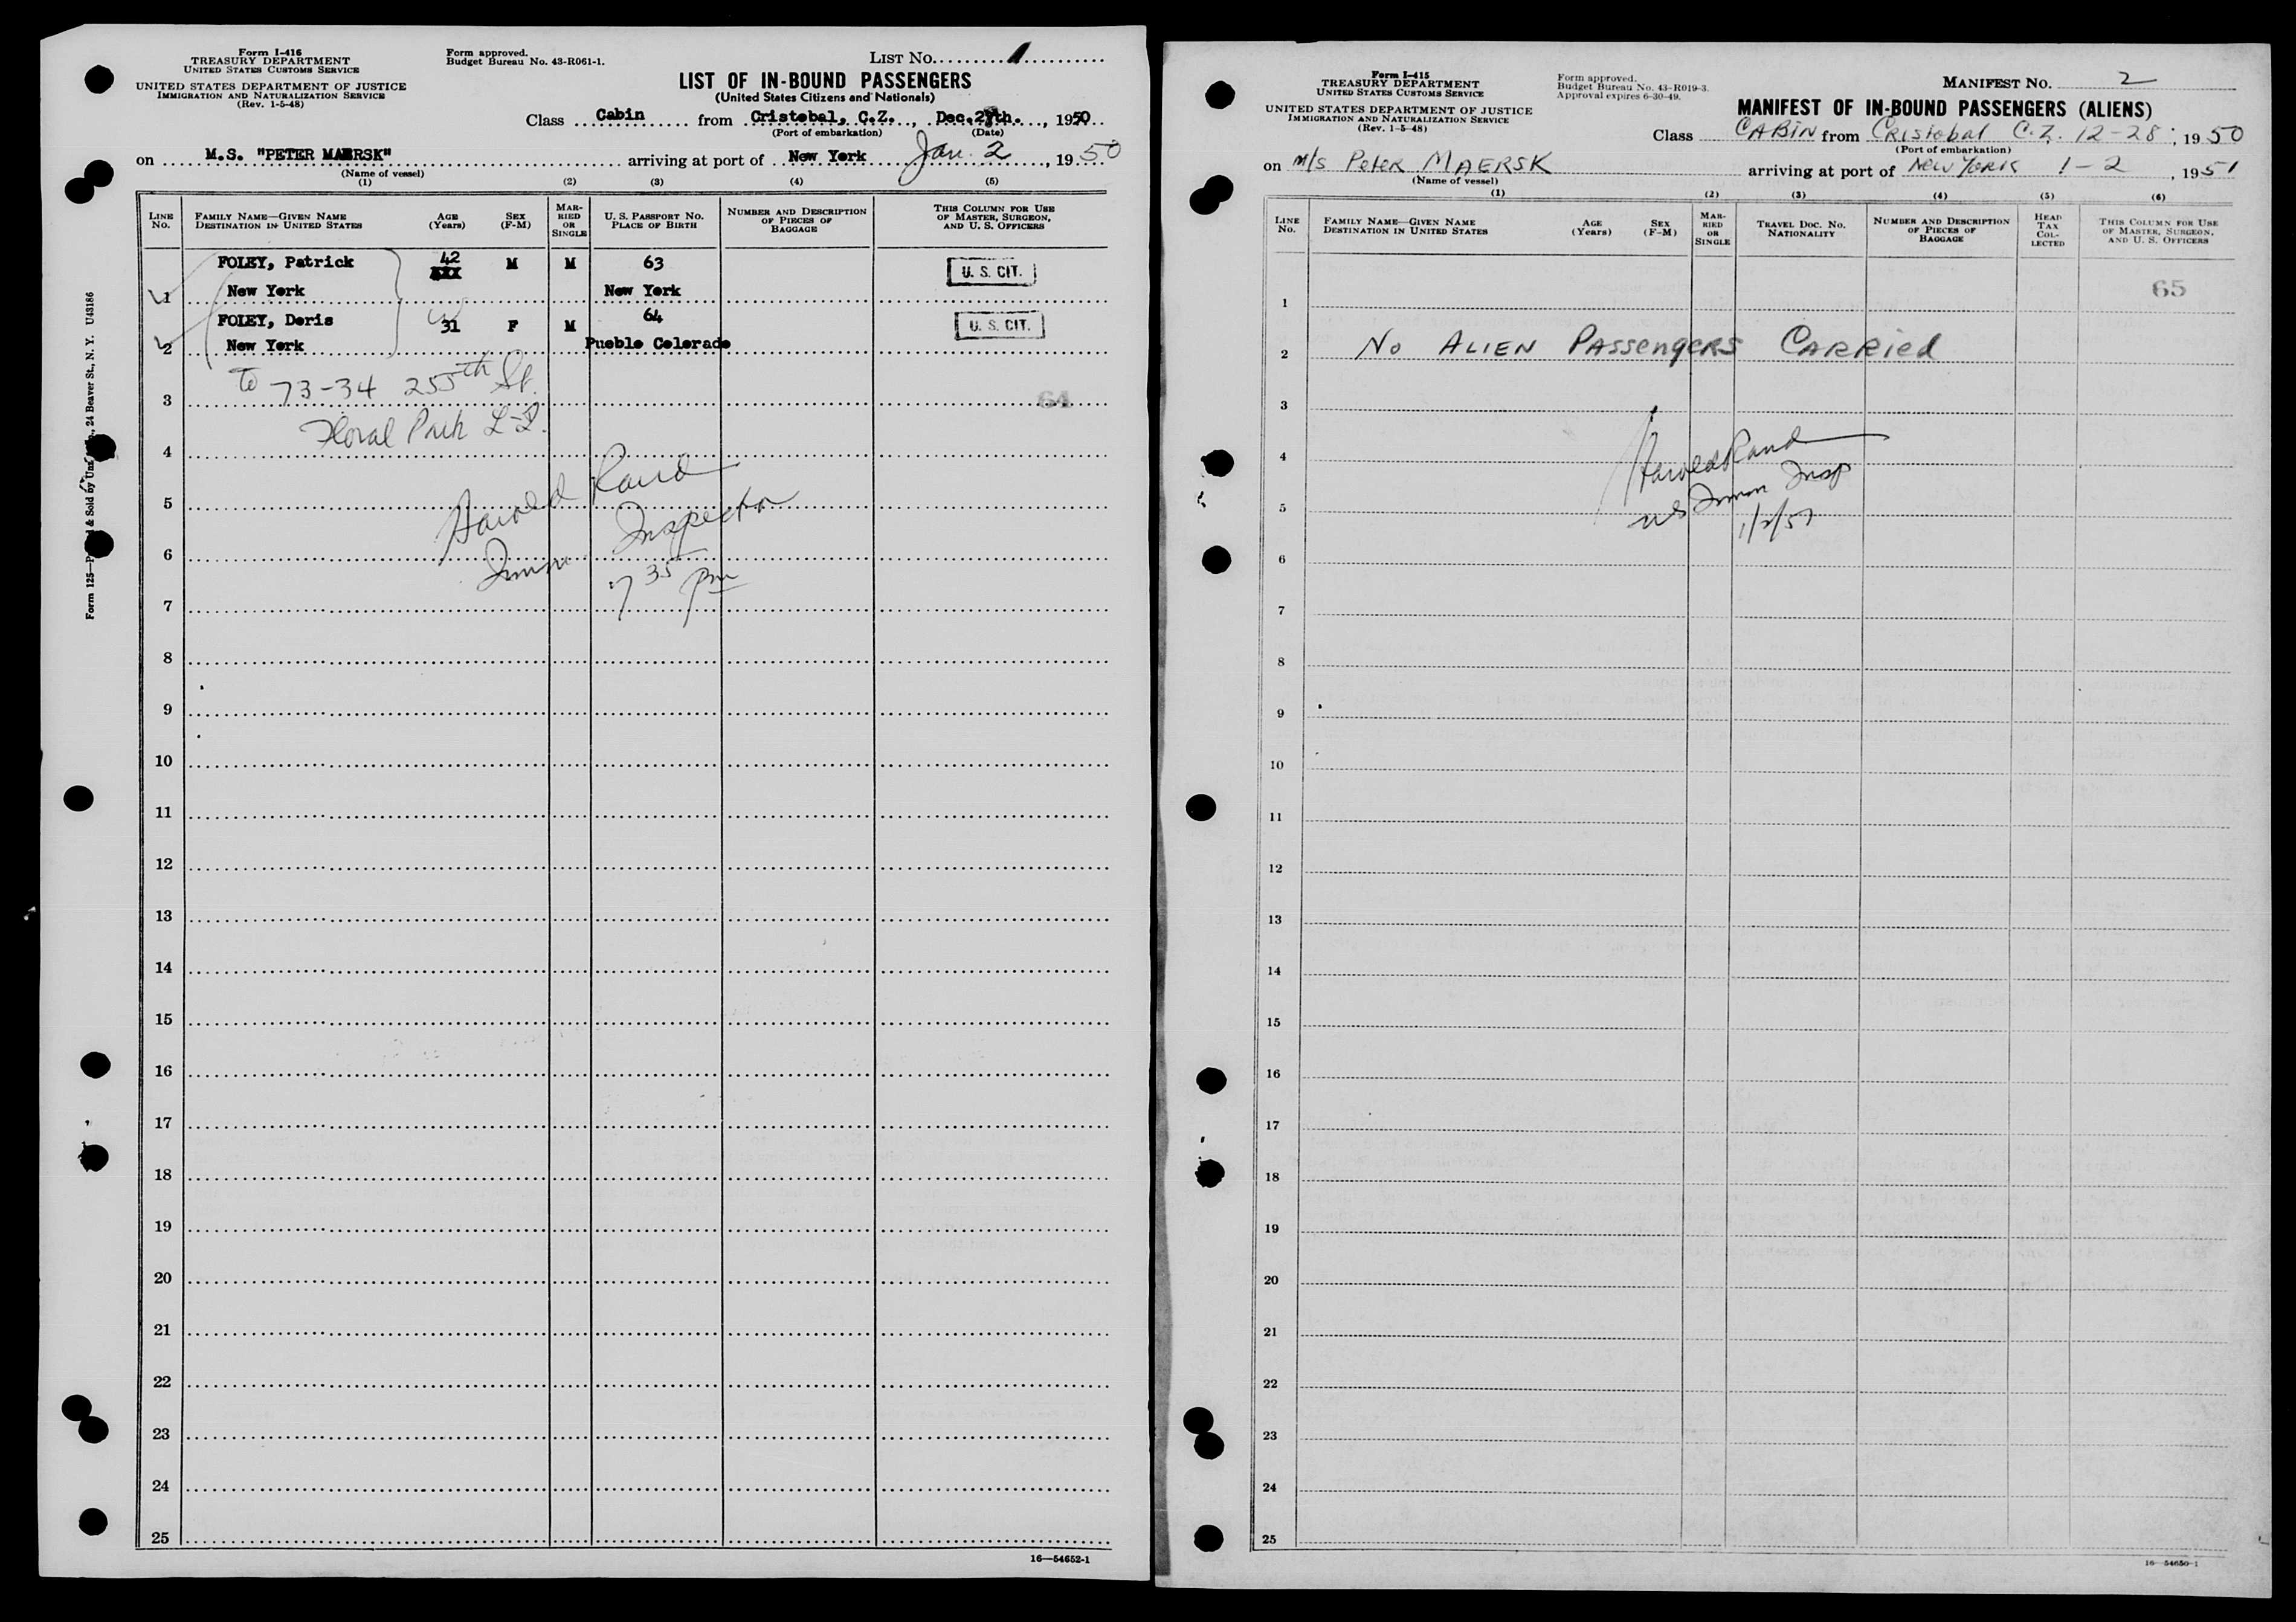 Form I-416
TREASURY DEPARTMENT
UNITED STATES CUSTOMS SERVICE
UNITED STATES DEPARTMENT OF JUSTICE
IMMIGRATION AND NATURALIZATION SERVICE
(Rev. 1-5-48)
Form approved.
Budget Bureau No. 43-R061-1.
LIST NO. 1
LIST OF IN-BOUND PASSENGERS
(United States Citizens and Nationals)
Class Cabin from Cristobal, C.Z., Dec. th., 1950
(Port of embarkation) (Date)
on M.S. "PETER MAERSK" arriving at port of New York Jan. 2, 1950
(Name of vessel)
(1) (2) (3) (4) (5)
LINE NO. FAMILY NAME—GIVEN NAME DESTINATION IN UNITED STATES AGE (Years) SEX (F-M) MARRIED OR SINGLE U. S. PASSPORT NO. PLACE OF BIRTH NUMBER AND DESCRIPTION OF PIECES OF BAGGAGE THIS COLUMN FOR USE OF MASTER, SURGEON, AND U. S. OFFICERS
FOLEY, Patrick 42 M M 63 U. S. CIT.
1 New York New York
FOLEY, Doris 31 F M 64 U. S. CIT.
2 New York Pueblo Colorado
to 73-34 255th St.
3 64
Floral Park L.I.
4
Harold Rand
5
Immn Inspector
6
7 35 pm
7
8
9
10
11
12
13
14
15
16
17
18
19
20
21
22
23
24
25
16—54652-1
Form 125— & Sold by , 24 Beaver St., N. Y. U43186
Form I-415
TREASURY DEPARTMENT
UNITED STATES CUSTOMS SERVICE
UNITED STATES DEPARTMENT OF JUSTICE
IMMIGRATION AND NATURALIZATION SERVICE
(Rev. 1-5-48)
Form approved.
Budget Bureau No. 43-R019-3.
Approval expires 6-30-49.
MANIFEST NO. 2
MANIFEST OF IN-BOUND PASSENGERS (ALIENS)
Class CABIN from Cristobal C.Z. 12-28, 1950
(Port of embarkation)
on M/S Peter MAERSK arriving at port of New York 1-2, 1951
(Name of vessel)
(1) (2) (3) (4) (5) (6)
LINE NO. FAMILY NAME—GIVEN NAME DESTINATION IN UNITED STATES AGE (Years) SEX (F-M) MARRIED OR SINGLE TRAVEL DOC. NO. NATIONALITY NUMBER AND DESCRIPTION OF PIECES OF BAGGAGE HEAD TAX COLLECTED THIS COLUMN FOR USE OF MASTER, SURGEON, AND U. S. OFFICERS
65
1
2 No ALIEN PASSENGERS CARRIED
3
4 Harold Rand
5 US Immn Insp
1/2/51
6
7
8
9
10
11
12
13
14
15
16
17
18
19
20
21
22
23
24
25
16—54650-1